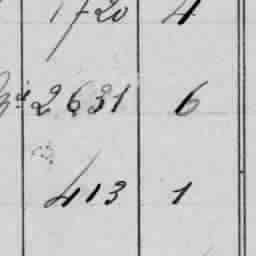 1720 4
3d 2631 6
413 1